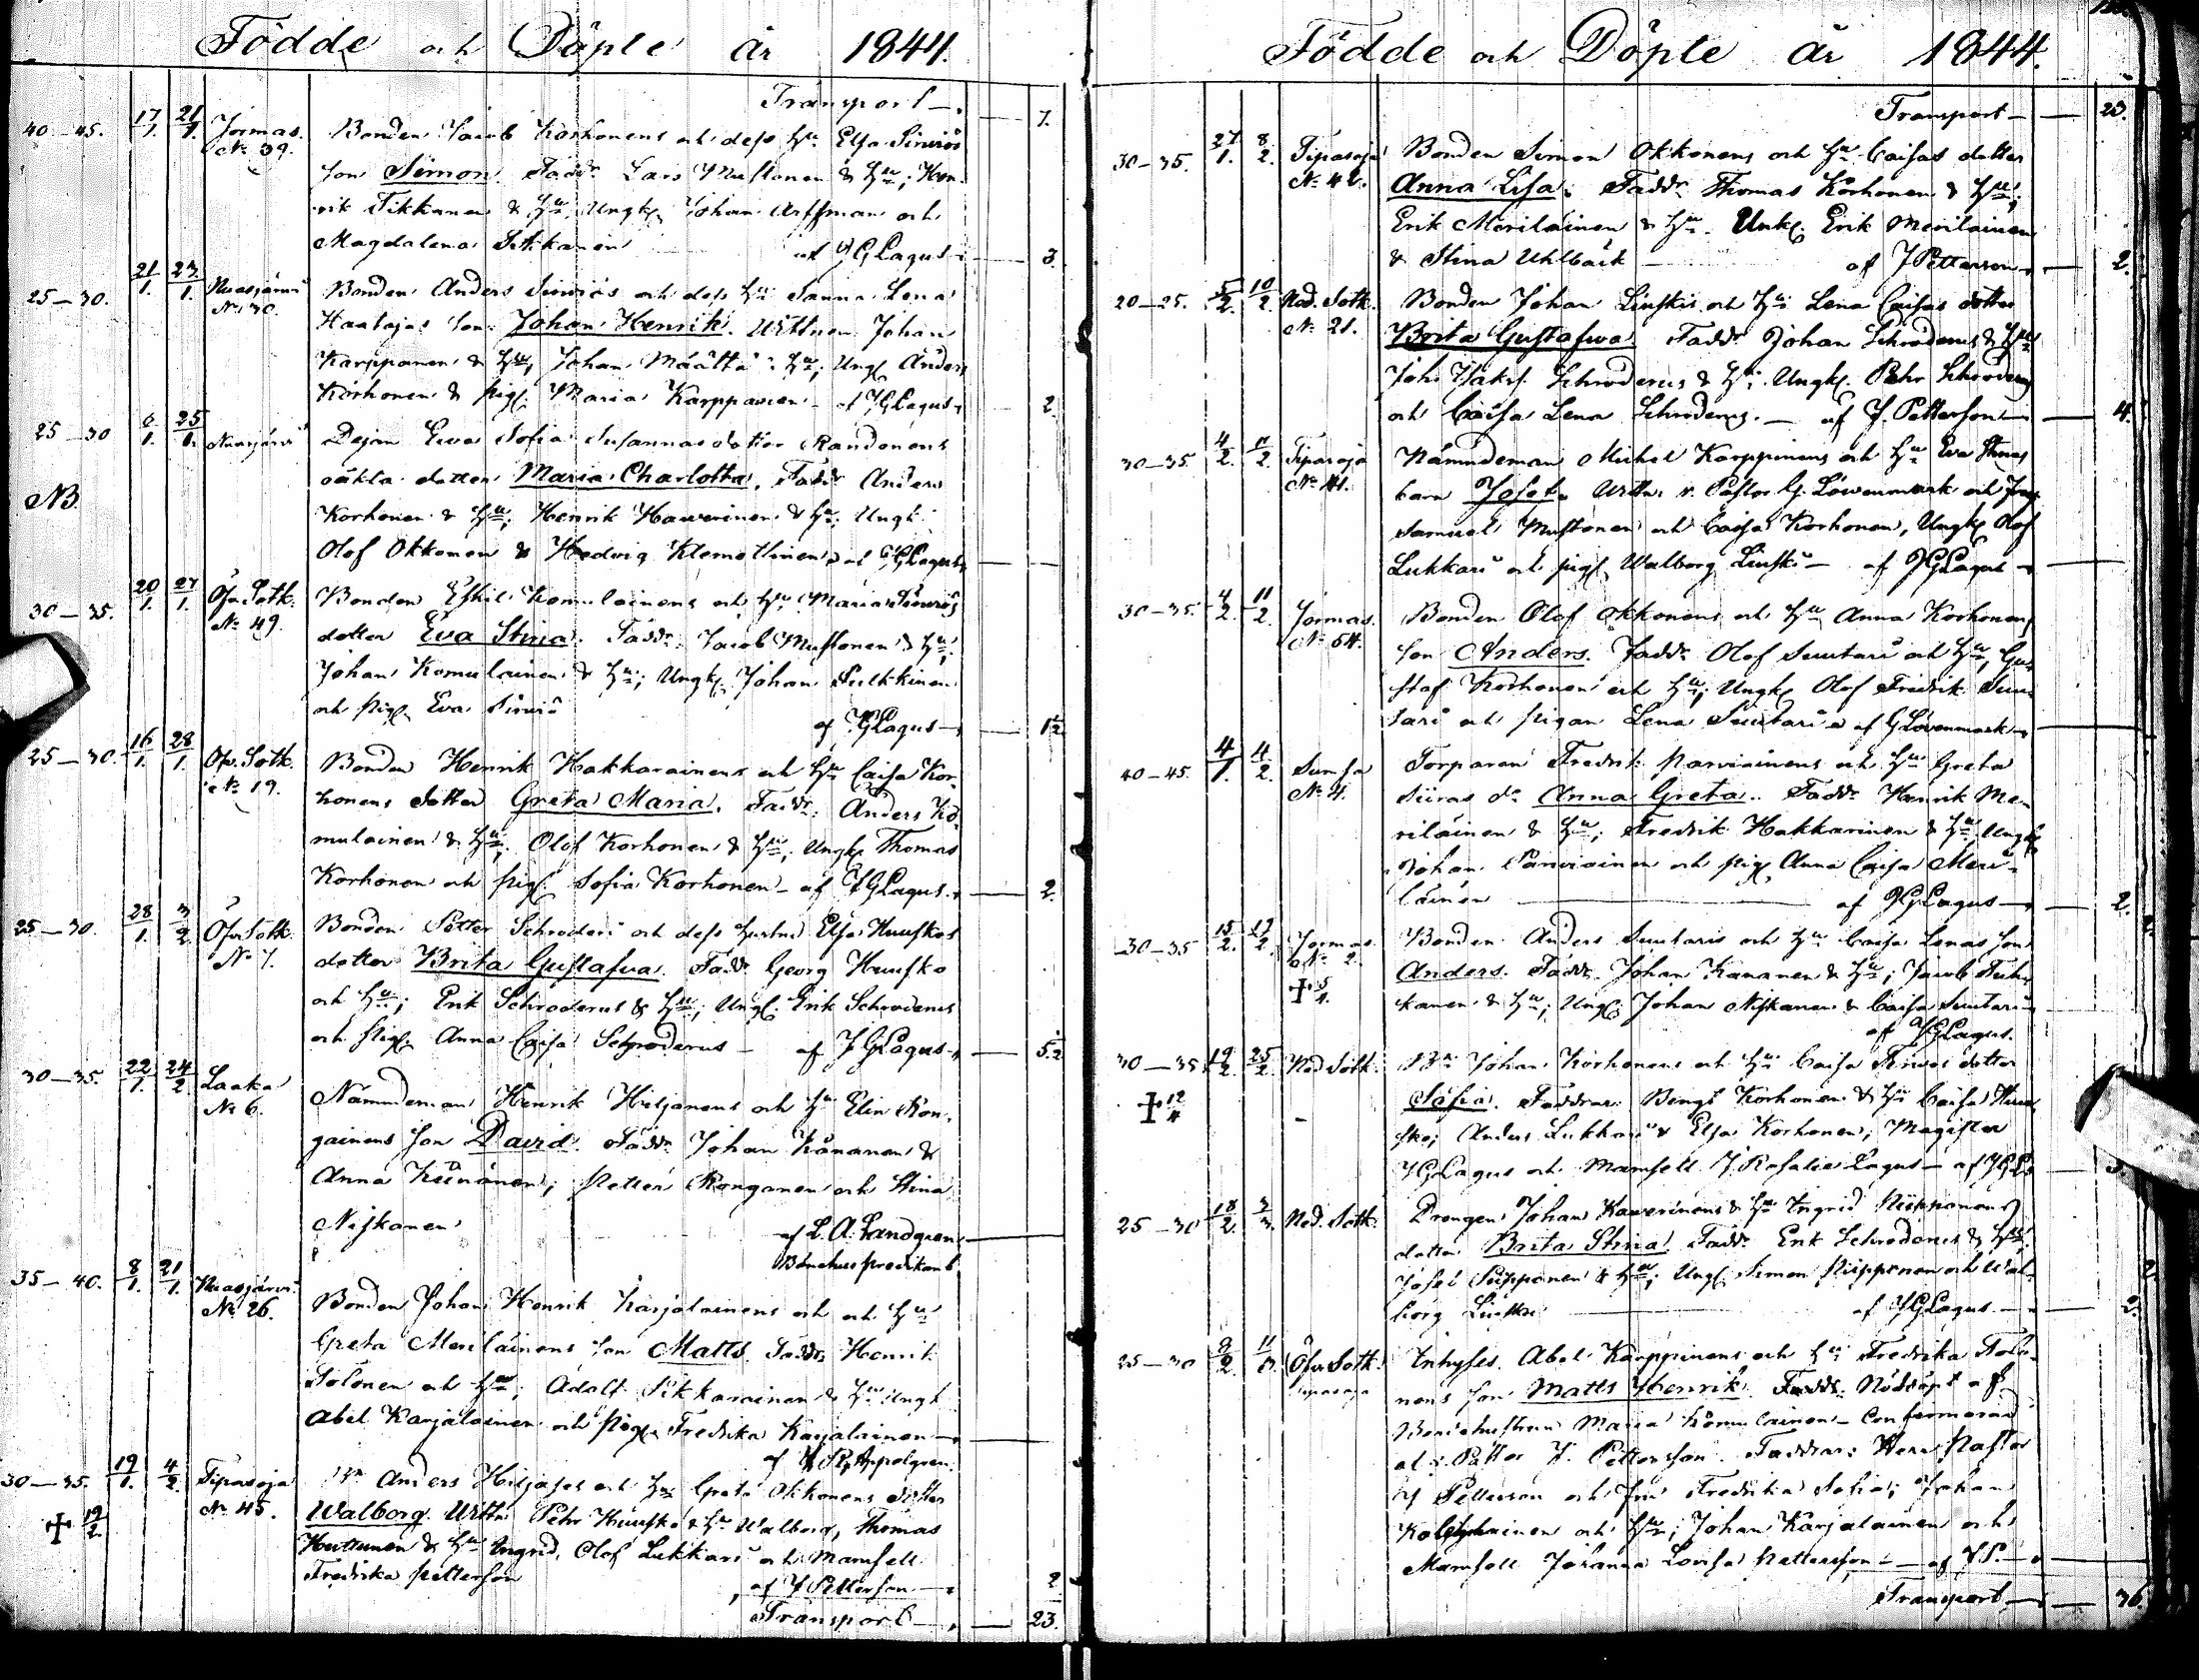 Födde och Döpte år 1844.
Transport — 7.
40—45. 17/1. 21/1. Jormas Bonden Jacob Korhonens och dess Hu Elsa Sirviös
No 39. son Simon. Fadd: Lars Mustonen & Hu; Hen-
rik Tikkanen & Hu; Ungk. Johan Arffman och
Magdalena af JGLagus — 3.
25—30. 21/1. 23/1. Nuasjärvi Bonden Anders Sirviös och dess Hu Sanna Lena
No 30. Haatajas son Johan Henrik. Wittnen Johan
Karppanen & Hu; Johan Määttä & Hu; Ungk Anders
Korhonen & pig. Maria Karppanen — af JGLagus — 2.
25—30 6/1. 25/1. Nuasjärvi Dejan Ewa Sofia Susannas dotter
NB. oäkta dotter Maria Charlotta. Fadd: Anders
Korhonen & Hu; Henrik Hawerinen & Hu; Ungk
Olof Okkonen & Hedvig Klemettinen af JGLagus —
30—35. 20/1. 27/1. Öfv. Sotk. Bonden Eskil Komulainens och Hu Maria Sirviös
No 49. dotter Eva Stina. Fadd: Jacob Mustonen & Hu;
Johan Komulainen & Hu; Ungk. Johan Pulkkinen
och Pig. Eva Sirviö af JGLagus — 1½
25—30. 16/1. 28/1. Öfv. Sotk. Bonden Henrik Hakkarainens och Hu Caisa Kor-
No 19. honens dotter Greta Maria. Fadd: Anders Ko-
mulainen & Hu; Olof Korhonen & Hu; Ungk Thomas
Korhonen och pig. Sofia Korhonen — af JGLagus — 2.
25—30. 28/1. 3/2. Öfv. Sotk. Bonden Petter Schroderi och dess hustru Elsa Huuskos
No 7. dotter Brita Gustafva. Fadd. Georg Huusko
och Hu; Erik Schroderus & Hu; Ungk. Erik Schroderus
och Pig. Anna Caisa Schroderus — af JGLagus —
30—35. 22/1. 24/2 Laaka Nämndeman Henrik Hiljanens och Hu Elin Ron-
No 6. gainens son David. Fadd: Johan Känänen &
Anna Keinänen; Petter Ronganen och Stina
Niskanen af L. A. Landgren
Bönehuspredikant.
35—40. 8/1. 21/1. Nuasjärvi Bonden Johan Henrik Karjalainens och och Hu
No 26. Greta Meriläinens son Matts. Fadd: Henrik
Tolonen och Hu; Adolf Pikkarainen & Hu; Ungk
Abel Karjalainen och Pig. Fredrika Karjalainen —
af Appelgren.
30—35. 19/1. 4/2. Tipasoja Bn Anders och Hu Greta Okkonens dotter
† 19/2. No 45. Walborg. Wittn: Pehr Huusko & Hu Walborg, Thomas
Huttunen & Hu Ingrid, Olof Lukkari och Mamsell
Fredrika Petterson af J Petterson — 2
Transport — 23.
Födde och Döpte år 1844.
Transport — 23.
30—35. 27/1. 8/2. Tipasoja Bonden Simon Okkonens och Hu Caisas dotter
No 42. Anna Lisa. Fadd: Thomas Korhonen & Hu;
Erik Meriläinen & Hu. Ungk. Erik Meriläinen
& Stina Uhlbäck — af J Petterson — 2.
20—25. 5/2. 10/2. Ned. Sotk. Bonden Johan Liuskis och Hu Lena Caisas dotter
No 21. Brita Gustafwa Fadd: Johan Schroderus & Hu
Joh. Isaks. Schroderus & Hu. Ungk. Pehr Schroderus
och Caisa Lena Schroderus. — af J. Petterson — 4.
30—35. 4/2. 11/2. Tipasoja Nämndeman Michel Karppinens och Hu Eva Stinas
No 41. barn Josef. Wittn: v. Pastor G. Löwenmark och Fru,
Samuel Mustonen och Caisa Korhonen, Ungk Olof
Lukkari och pig. Walborg Liuski — af JGLagus —
30—35. 4/2. 11/2. Jormas Bonden Olof Okkonens och Hu Anna Korhonens
No 54. son Anders. Fadd: Olof Suutari och Hu; Gu-
staf Korhonen och Hu; Ungk Olof Fredrik Suu-
tari och pigan Lena Suutari af GLövenmark —
40—45. 4/1. 4/2. Sumsa Torparen Fredrik Parviainens och Hu Greta
No 4. Siiras dr Anna Greta. Fadd: Henrik Me-
riläinen & Hu; Fredrik Hakkarinen & Hu; Ungk
Johan Parviainen och pig Anna Caisa Meri-
läinen — af JGLagus — 2.
30—35 15/2. 17/2. Jormas Bonden Anders Suutaris och Hu Caisa Lenas son
No 2. Anders. Fadd: Johan Kananen & Hu; Jacob Tuh-
† kanen & Hu; Ungk Johan Niskanen & Caisa Suutari
af JGLagus.
30—35 19/2. 25/2. Ned Sotk. Bn Johan Korhonens och Hu Caisa dotter
† 12/4 Sofia. Faddrar: Bengt Korhonen & Hu Caisa Huu-
sko; Anders Lukkari & Elsa Korhonen; Magister
JGLagus och Mamsell J. Rosalie Lagus — af JGL
25—30 18/2. 3/3. Ned. Sotk. Drengen Johan Kawerinens & Hu Ingrid Piipponens
dotter Brita Stina. Fadd: Erik Schroderus & Hu;
Josef Piipponen & Hu; Ungk. Simon Piipponen och Wal-
borg Liuski — af JGLagus — 2.
25—30 9/2. 11/3. Öfv. Sotk. Inhyses. Abel Karppinens och Hu Fredrika Tolo-
Tipasoja nens son Matts Henrik. Fadd: Nöddöpt af
Bondehustrun Maria Komulainen — Confirmerad
af v. Pastor J. Pettersson. Faddrar: Herr Pastor
J Petterson och fru Fredrika Sofia; Johan
och Hu; Johan Karjalainen och
Mamsell Johanna Lovisa Pettersson — af J.P. —
Transport — 36.